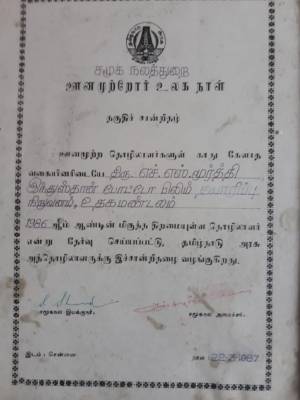 சமூக நலத்துறை
ஊனமுற்றோர் உலக நாள்
தகுதிச் சான்றிதழ்
ஊனமுற்ற தொழிலாளர்களுள் காது கேளாத
வகையினரிடையே திரு. எச். எஸ். மூர்த்தி
இந்துஸ்தான் போட்டோ பிலிம் தயாரிப்பு
நிறுவனம், உதகமண்டலம்
1986 ஆம் ஆண்டின் மிகுந்த திறமையுள்ள தொழிலாளர்
என்று தேர்வு செய்யப்பட்டு, தமிழ்நாடு அரசு
அத்தொழிலாளருக்கு இச்சான்றிதழை வழங்குகிறது.
சமூகநல இயக்குநர்.
சமூகநல அமைச்சர்.
இடம் : சென்னை
நாள்